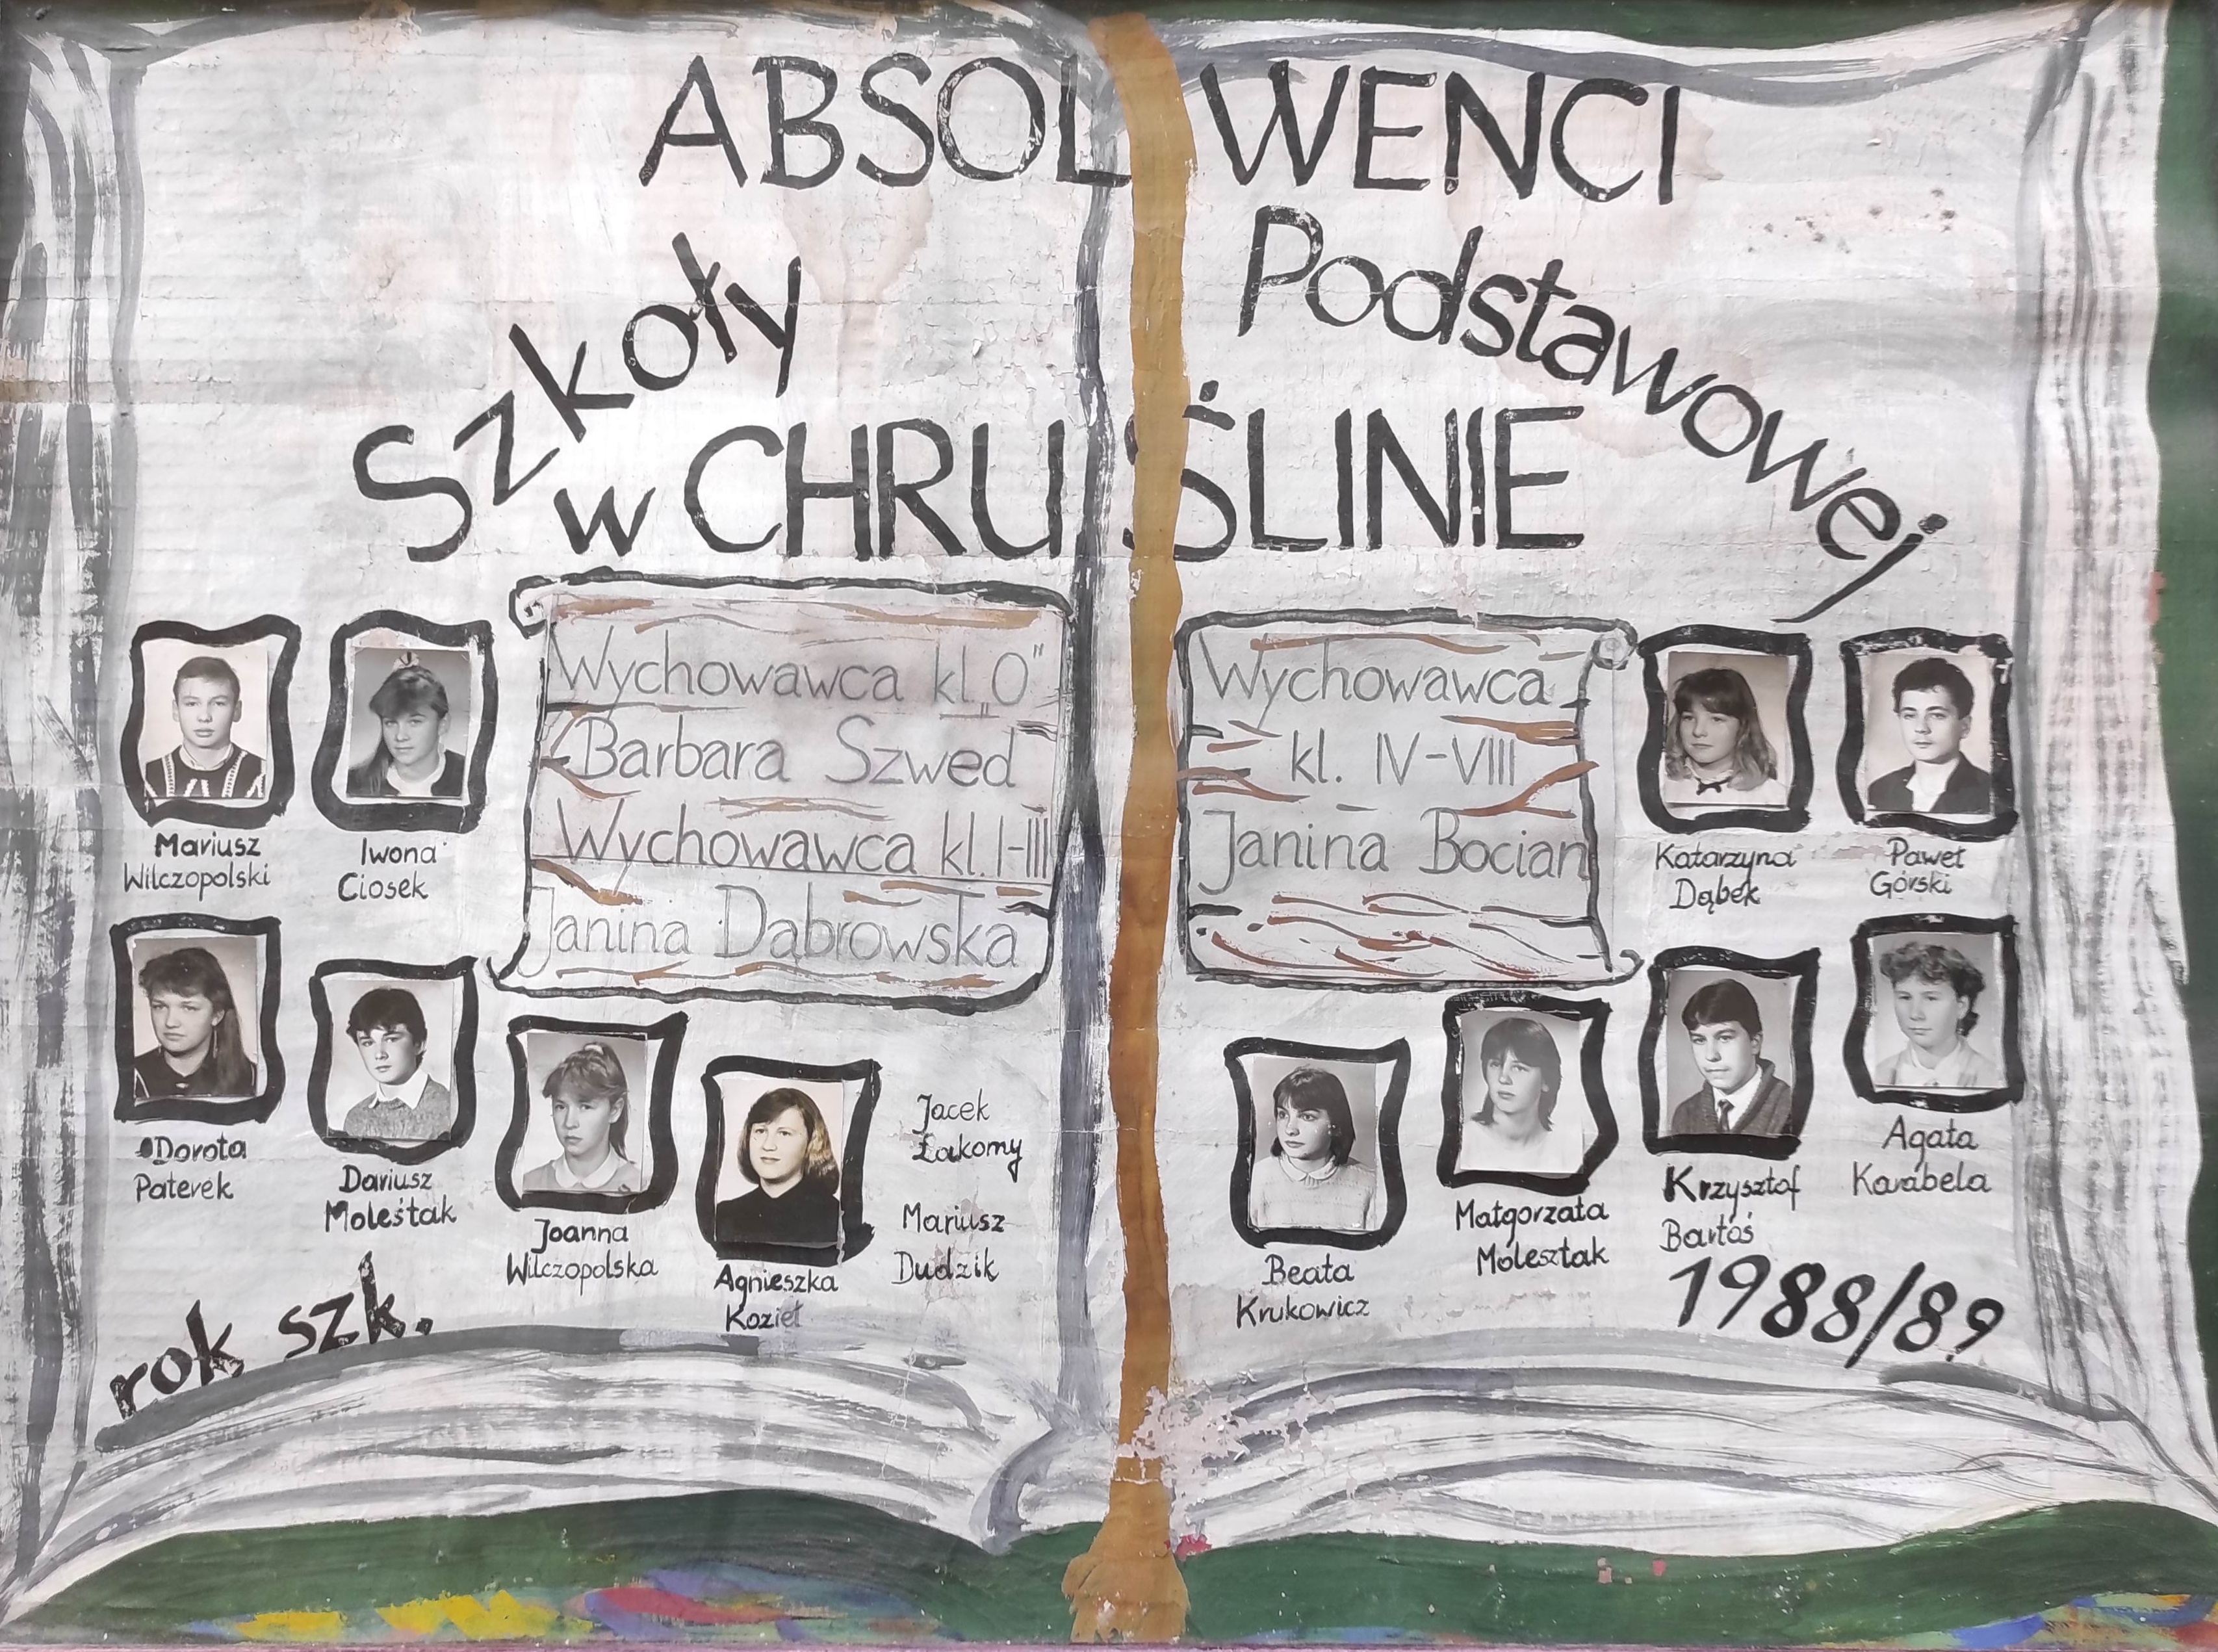 ABSOLWENCI
Szkoły Podstawowej
w CHRUŚLINIE
Wychowawca kl. „0”
Barbara Szwed
Wychowawca kl. I-III
Janina Dąbrowska
Wychowawca
kl. IV-VIII
Janina Bocian
Mariusz
Wilczopolski
Iwona
Ciosek
Katarzyna
Dąbek
Paweł
Górski
Dorota
Paterek
Dariusz
Moleśtak
Joanna
Wilczopolska
Agnieszka
Kozieł
Jacek
Łakomy
Mariusz
Dudzik
Beata
Krukowicz
Małgorzata
Molesztak
Krzysztof
Bartoś
Agata
Karabela
rok szk. 1988/89